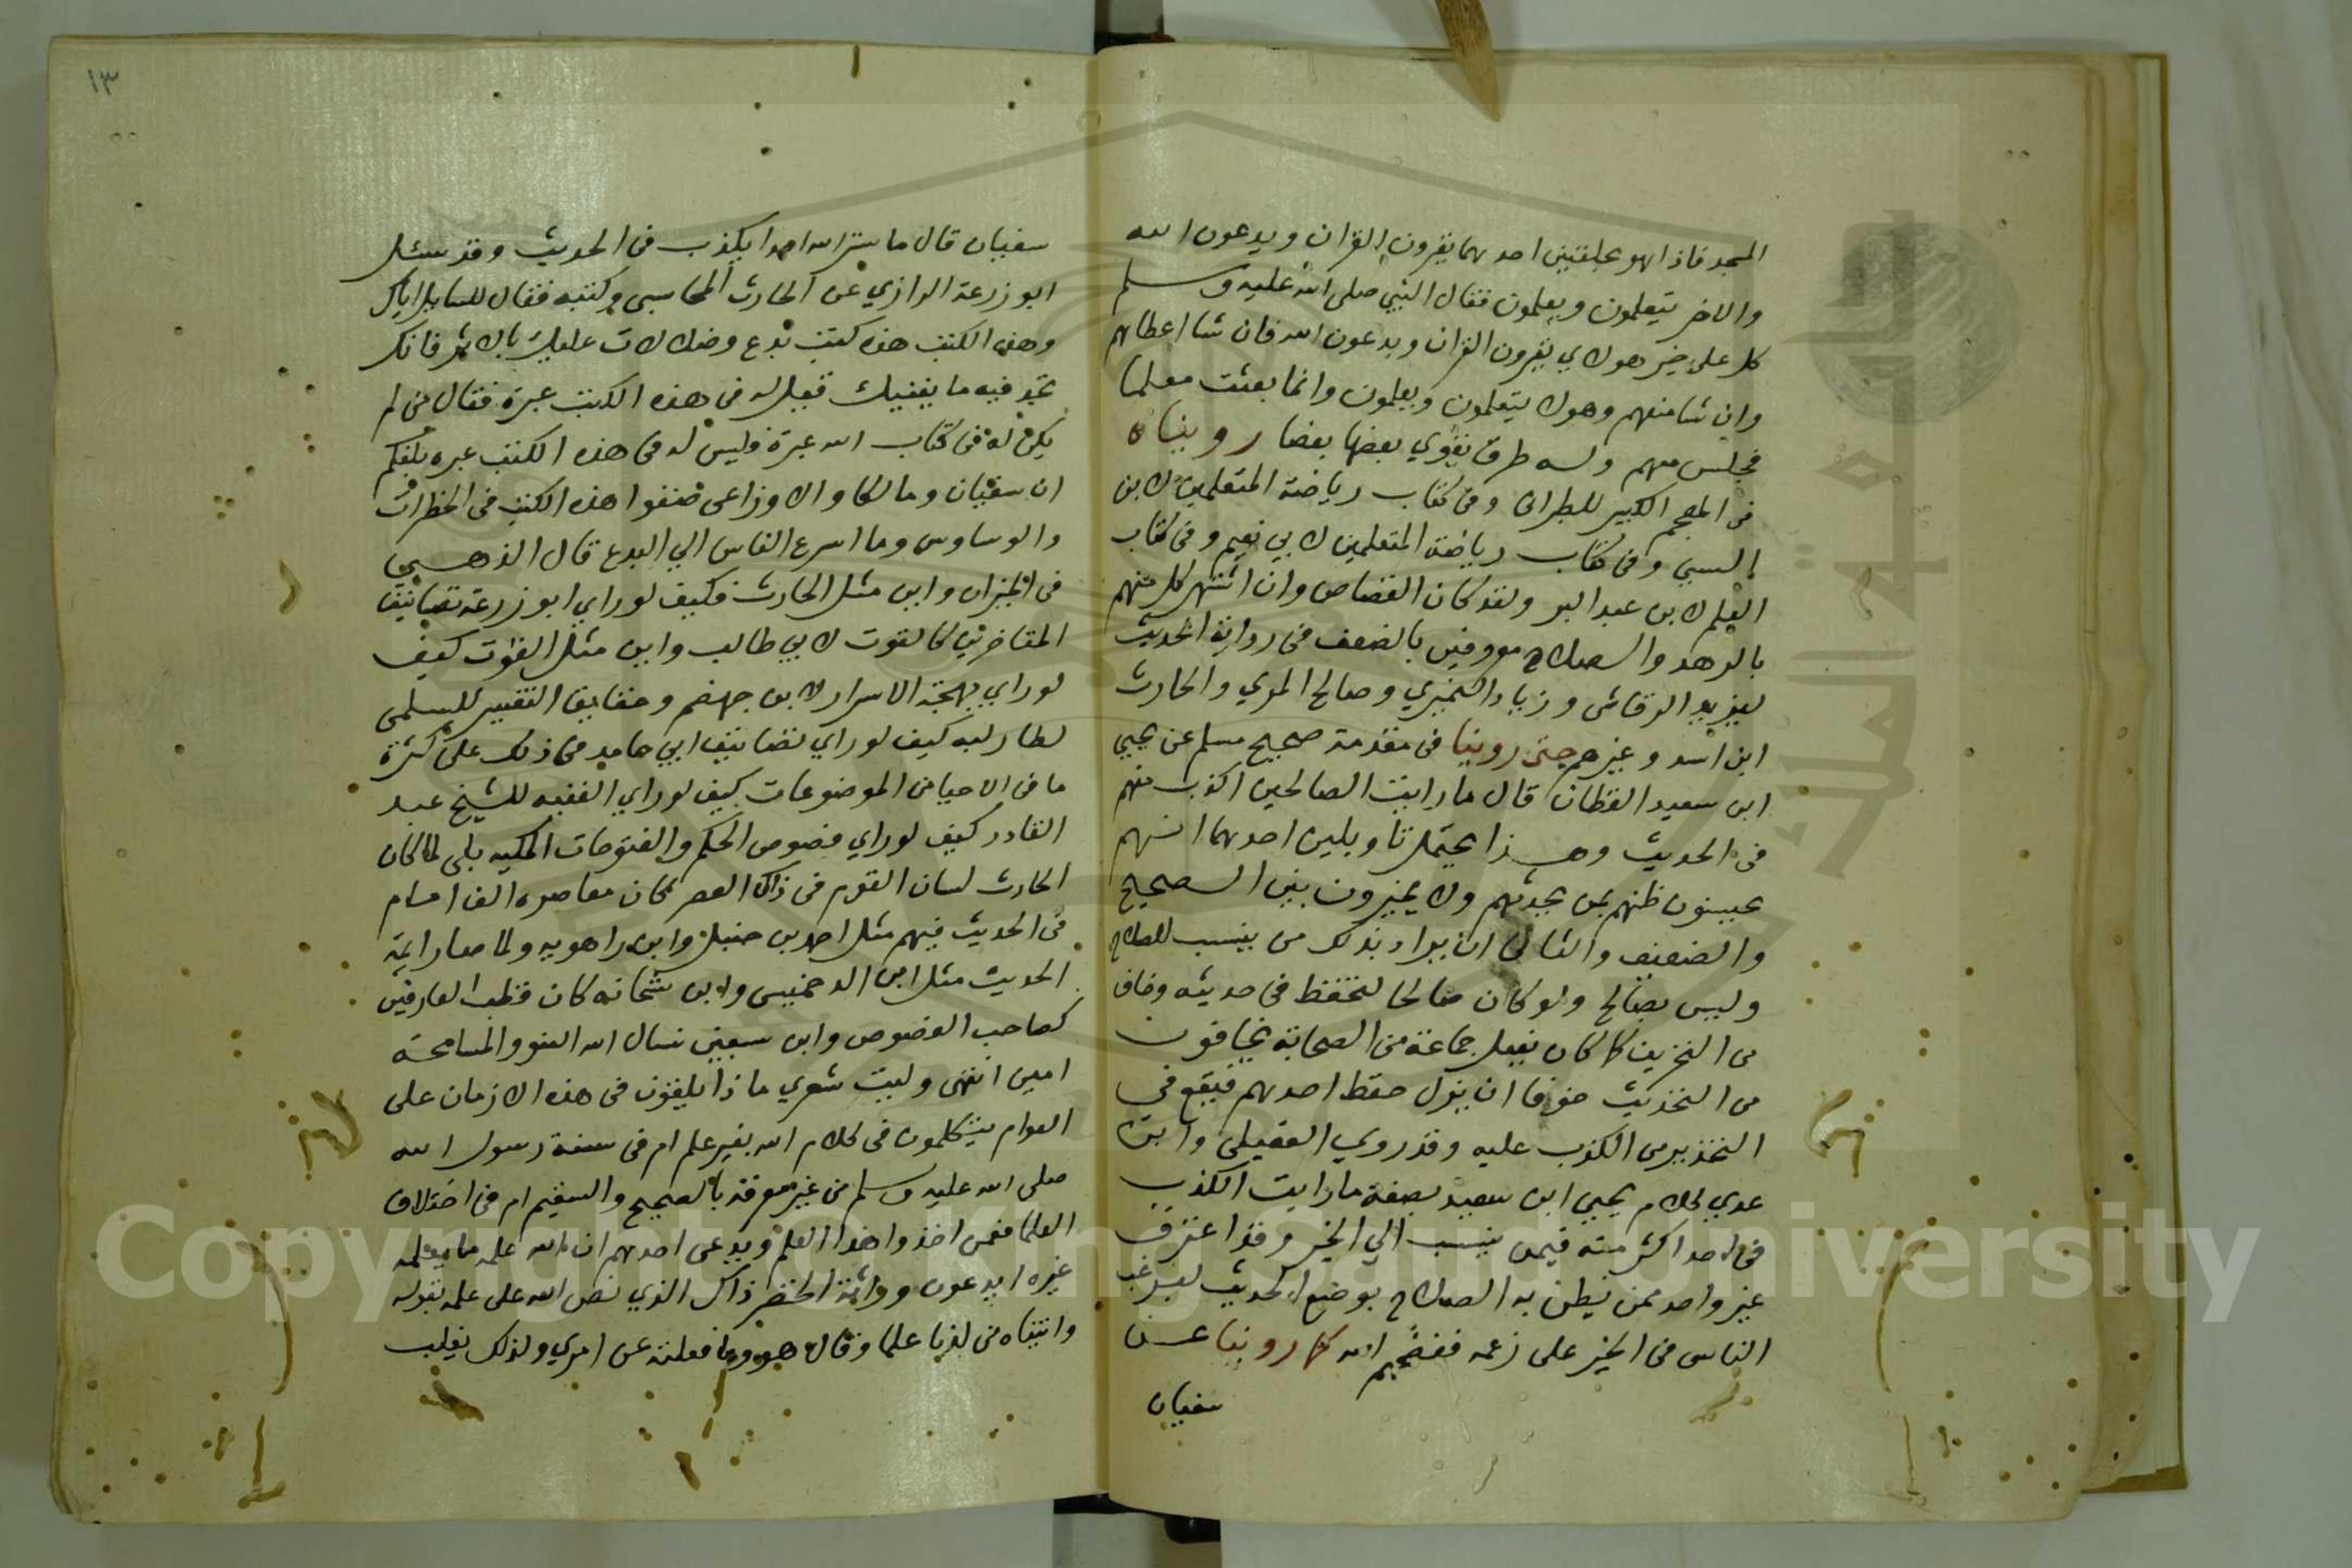 المسجد فاذا هو بحلقتين احدهما يقرون القران ويدعون الله
والاخر يتعلمون ويعلمون فقال النبي صلى الله عليه وسلم
كل على خير هولاي يقرون القران ويدعون الله فان شا اعطاهم
وان شا منعهم وهولا يتعلمون ويعلمون وانما بعثت معلما
فجلس معهم وله طرق يقوي بعضها بعضا رويناه
في المعجم الكبير للطبراني وفي كتاب رياضة المتعلمين لابن
السني وفي كتاب رياضة المتعلمين لابي نعيم وفي كتاب
العلم لابن عبد البر ولقد كان القصاص وان اشتهر كل منهم
بالزهد والصلاح معروفين بالضعف في رواية الحديث
ليزيد الرقاشي وزياد النميري وصالح المري والحارث
ابن اسد وغيرهم حتى روينا في مقدمة صحيح مسلم عن يحيى
ابن سعيد القطان قال ما رايت الصالحين اكذب منهم
في الحديث وهذا يحتمل تاويلين احدهما انهم
يحسنون ظنهم بمن يحدثهم ولا يميزون بين الصحيح
والضعيف والثاني ان يراد بذلك من ينسب للصلاح
وليس بصالح ولو كان صالحا لتحفظ في حديثه وخاف
من التحريف كما كان يفعل جماعة من الصحابة يخافون
من التحديث خوفا ان يزل حفظ احدهم فيقع في
التحذير من الكذب عليه وقد روي العقيلي وابن
عدي كلام يحيى ابن سعيد بصفة ما رايت الكذب
في احد اكثر منه فيمن ينسب الي الخير وقد اعترف
غير واحد ممن يظن به الصلاح بوضع الحديث ليرغب
الناس في الخير على زعمه ففضحهم الله كما روينا عن
سفيان
١٣
سفيان قال ما ستر الله احدا يكذب في الحديث وقد سئل
ابو زرعة الرازي عن الحارث المحاسبي وكتبه فقال للسايل اياك
وهذه الكتب هذه كتب بدع وضلالات عليك بالاثر فانك
تجد فيه ما يغنيك قيل له في هذه الكتب عبرة فقال من لم
يكن له في كتاب الله عبرة فليس له في هذه الكتب عبره بلغكم
ان سفيان ومالكا والاوزاعي صنفوا هذه الكتب في الخطرات
والوساوس وما اسرع الناس الي البدع قال الذهبي
في الميزان واين مثل الحارث فكيف لو راي ابو زرعة تصانيف
المتاخرين كالقوت لابي طالب واين مثل القوت كيف
لو راي بهجة الاسرار لابن جهضم وحقايق التفسير للسلمي
لطار لبه كيف لو راي تصانيف ابي حامد في ذلك على كثرة
ما في الاحيا من الموضوعات كيف لو راي الغنيه للشيخ عبد
القادر كيف لو راي فصوص الحكم والفتوحات المكيه بلى لما كان
الحارث لسان القوم في ذاك العصر كان معاصره الف امام
في الحديث فيهم مثل احمد بن حنبل وابن راهويه ولما صار ايمة
الحديث مثل ابن الدخميسي وابن شحانه كان قطب العارفين
كصاحب الفصوص وابن سبعين نسال الله العفو والمسامحة
امين انتهى وليت شعري ماذا يلقون في هذه الازمان على
العوام يتكلمون في كلام الله بغير علم ام في سنة رسول الله
صلى الله عليه وسلم من غير معرفة بالصحيح والسقيم ام في اختلاف
العلما فعمن اخذوا هذا العلم ويدعى احدهم ان الله علمه ما يعلمه
غيره ايدعون وراثة الخضر ذاك الذي نص الله على علمه بقوله
واتيناه من لدنا علما وقال هو وما فعلته عن امري ولذلك يغلب